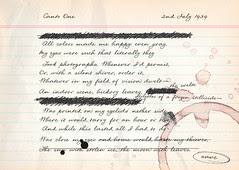 Canto One 2nd July 1959
All colors made me happy even gray.
My eyes were such that literally they
Took photographs. Whenever I'd permit,
Or, with a silent shiver, order it,
Whatever in my field of vision dwelt—
An indoor scene, hickory leaves, the svelte
of a frozen stillicide—
Was printed on my eyelids' nether side
Where it would tarry for an hour or
And while this lasted all I had to do
Was close my eyes and home would have my thieves,
The sun with stolen ice, the moon with leaves